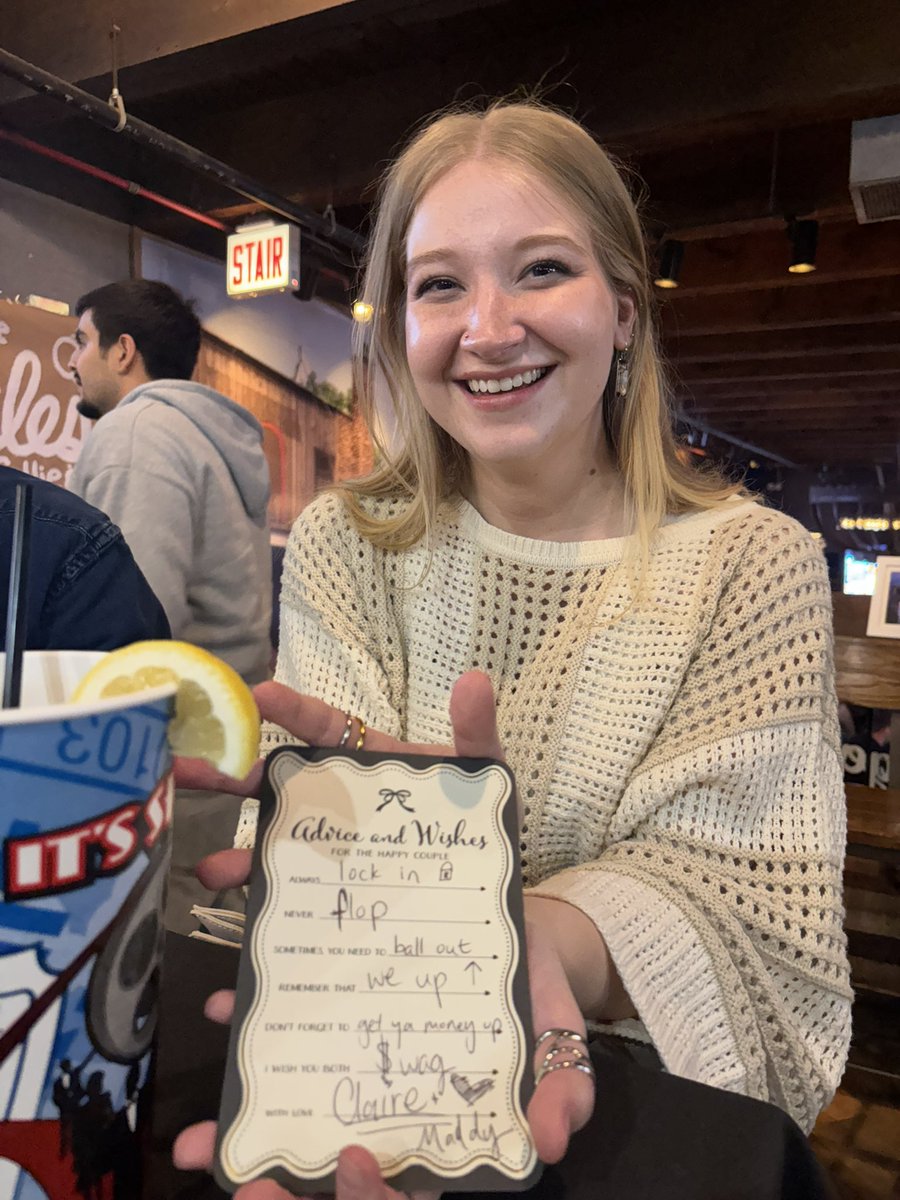 STAIR
les
103
IT'S S
Advice and Wishes
FOR THE HAPPY COUPLE
ALWAYS lock in
NEVER flop
SOMETIMES YOU NEED TO ball out
REMEMBER THAT we up ↑
DON'T FORGET TO get ya money up
I WISH YOU BOTH $wag
WITH LOVE Claire +
Maddy
op